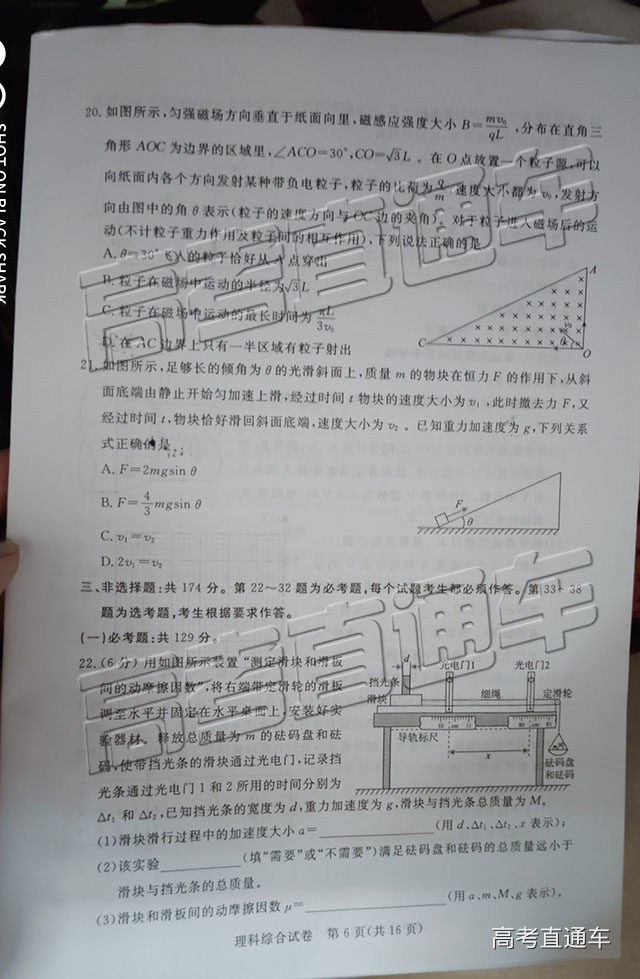 SHOT ON BLACK SHARK
20. 如图所示,匀强磁场方向垂直于纸面向里,磁感应强度大小 B=mv₀/qL ,分布在直角三
角形 AOC 为边界的区域里,∠ACO=30°,CO=√3L 。在 O 点放置一个粒子源,可以
向纸面内各个方向发射某种带负电粒子,粒子的比荷为 q/m ,速度大小都为 v₀,发射方
向由图中的角 θ 表示(粒子的速度方向与 OC 边的夹角)。对于粒子进入磁场后的运
动(不计粒子重力作用及粒子间的相互作用),下列说法正确的是
A. θ=30° 飞入的粒子恰好从 A 点穿出
B. 粒子在磁场中运动的半径为√3L
C. 粒子在磁场中运动的最长时间为 πL/3v₀
D. 在 AC 边界上只有一半区域有粒子射出
A
C
v₀
θ
O
21. 如图所示,足够长的倾角为 θ 的光滑斜面上,质量 m 的物块在恒力 F 的作用下,从斜
面底端由静止开始匀加速上滑,经过时间 t 物块的速度大小为 v₁ ,此时撤去力 F,又
经过时间 t,物块恰好滑回斜面底端,速度大小为 v₂ 。已知重力加速度为 g,下列关系
式正确的是
A. F=2mgsin θ
B. F=4/3 mgsin θ
C. v₁=v₂
D. 2v₁=v₂
F
θ
三、非选择题:共 174 分。第 22～32 题为必考题,每个试题考生都必须作答。第 33～38
题为选考题,考生根据要求作答。
(一)必考题:共 129 分。
22. (6 分) 用如图所示装置“测定滑块和滑板
间的动摩擦因数”,将右端带定滑轮的滑板
调至水平并固定在水平桌面上,安装好实
验器材。释放总质量为 m 的砝码盘和砝
码,使带挡光条的滑块通过光电门,记录挡
光条通过光电门 1 和 2 所用的时间分别为
Δt₁ 和 Δt₂ ,已知挡光条的宽度为 d,重力加速度为 g,滑块与挡光条总质量为 M。
d
光电门1
光电门2
挡光条
滑块
细绳
定滑轮
导轨标尺
x
砝码盘
和砝码
(1)滑块滑行过程中的加速度大小 a= (用 d、Δt₁、Δt₂、x 表示);
(2)该实验 (填“需要”或“不需要”)满足砝码盘和砝码的总质量远小于
滑块与挡光条的总质量。
(3)滑块和滑板间的动摩擦因数 μ= (用 a、m、M、g 表示)。
理科综合试卷 第 6 页(共 16 页)
高考直通车
高考直通车
高考直通车